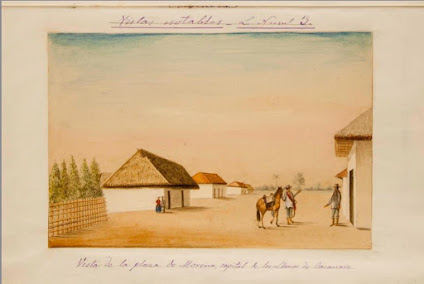 Vistas notables _ L. Numl 3.
Vista de la plaza de Moreno, capital de los llanos de Casanare